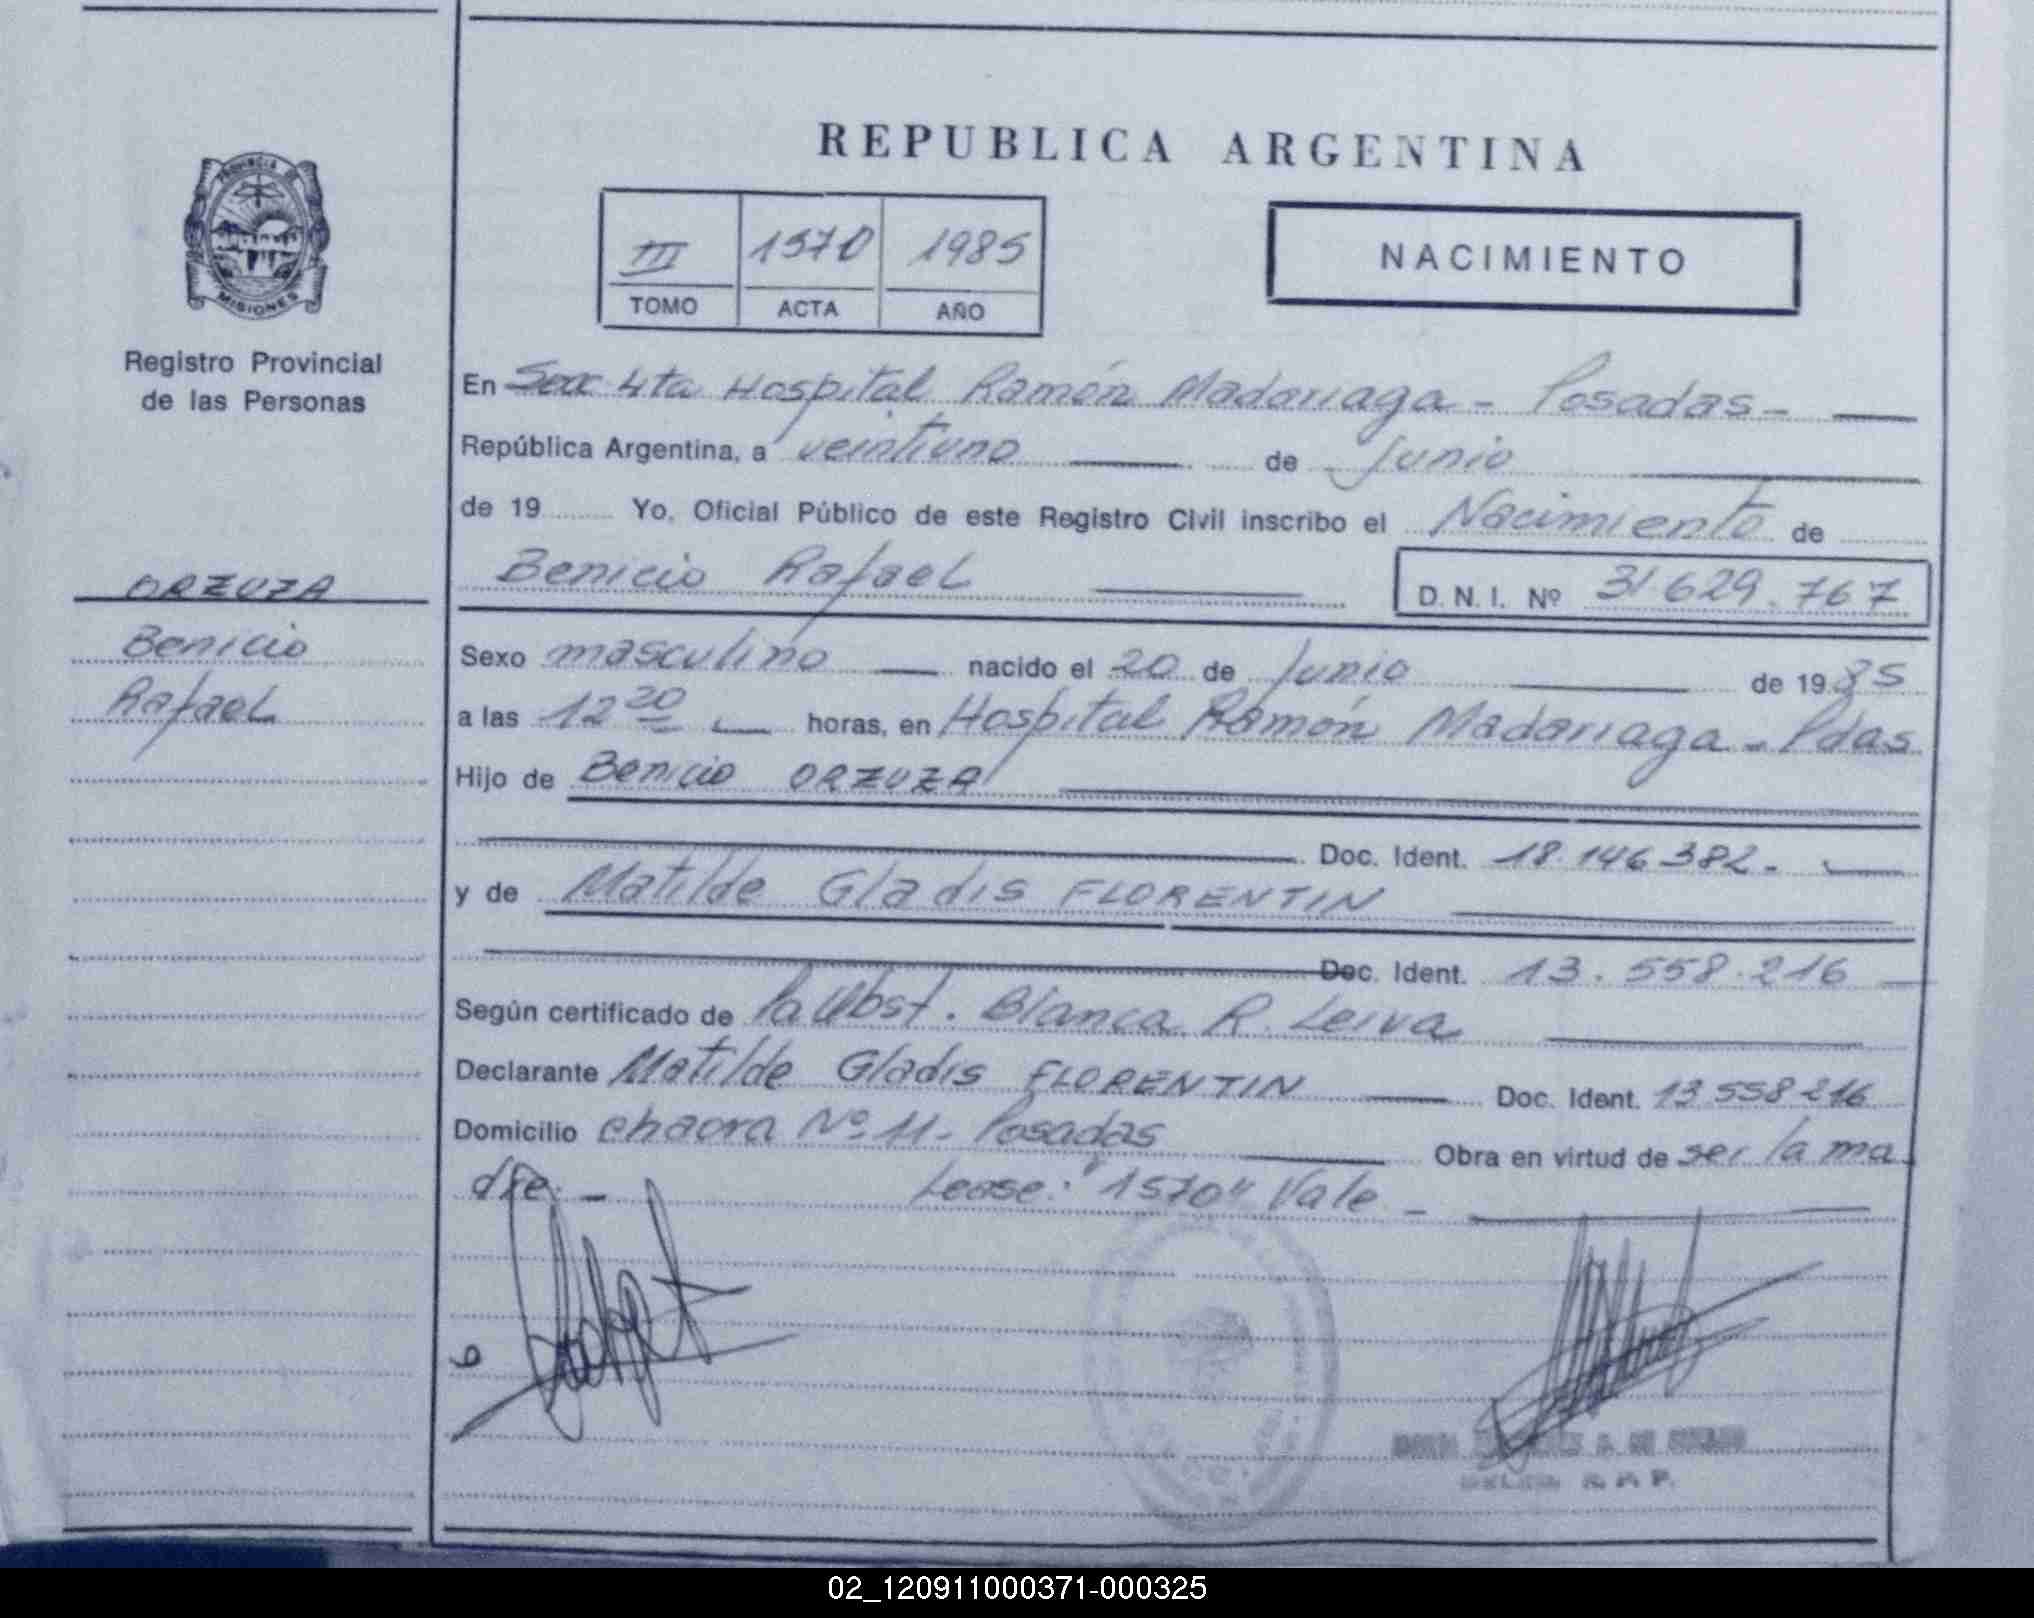 REPUBLICA ARGENTINA
PROVINCIA DE
MISIONES
Registro Provincial
de las Personas
III 1570 1985
TOMO ACTA AÑO
NACIMIENTO
En Secc 4ta Hospital Ramón Madariaga - Posadas -
República Argentina, a veintiuno de Junio
de 19 Yo, Oficial Público de este Registro Civil inscribo el Nacimiento de
Benicio Rafael D.N.I. Nº 31.629.767
ORZUZA
Benicio
Rafael
Sexo masculino nacido el 20 de Junio de 1985
a las 12 20 horas, en Hospital Ramón Madariaga - Pdas
Hijo de Benicio ORZUZA
Doc. Ident. 18.146.382.-
y de Matilde Gladis FLORENTIN
Doc. Ident. 13.558.216
Según certificado de Blanca R. Leiva
Declarante Matilde Gladis FLORENTIN Doc. Ident. 13.558.216
Domicilio chacra Nº 11- Posadas Obra en virtud de ser la ma
dre. - Lease: "1570" Vale -
02_120911000371-000325